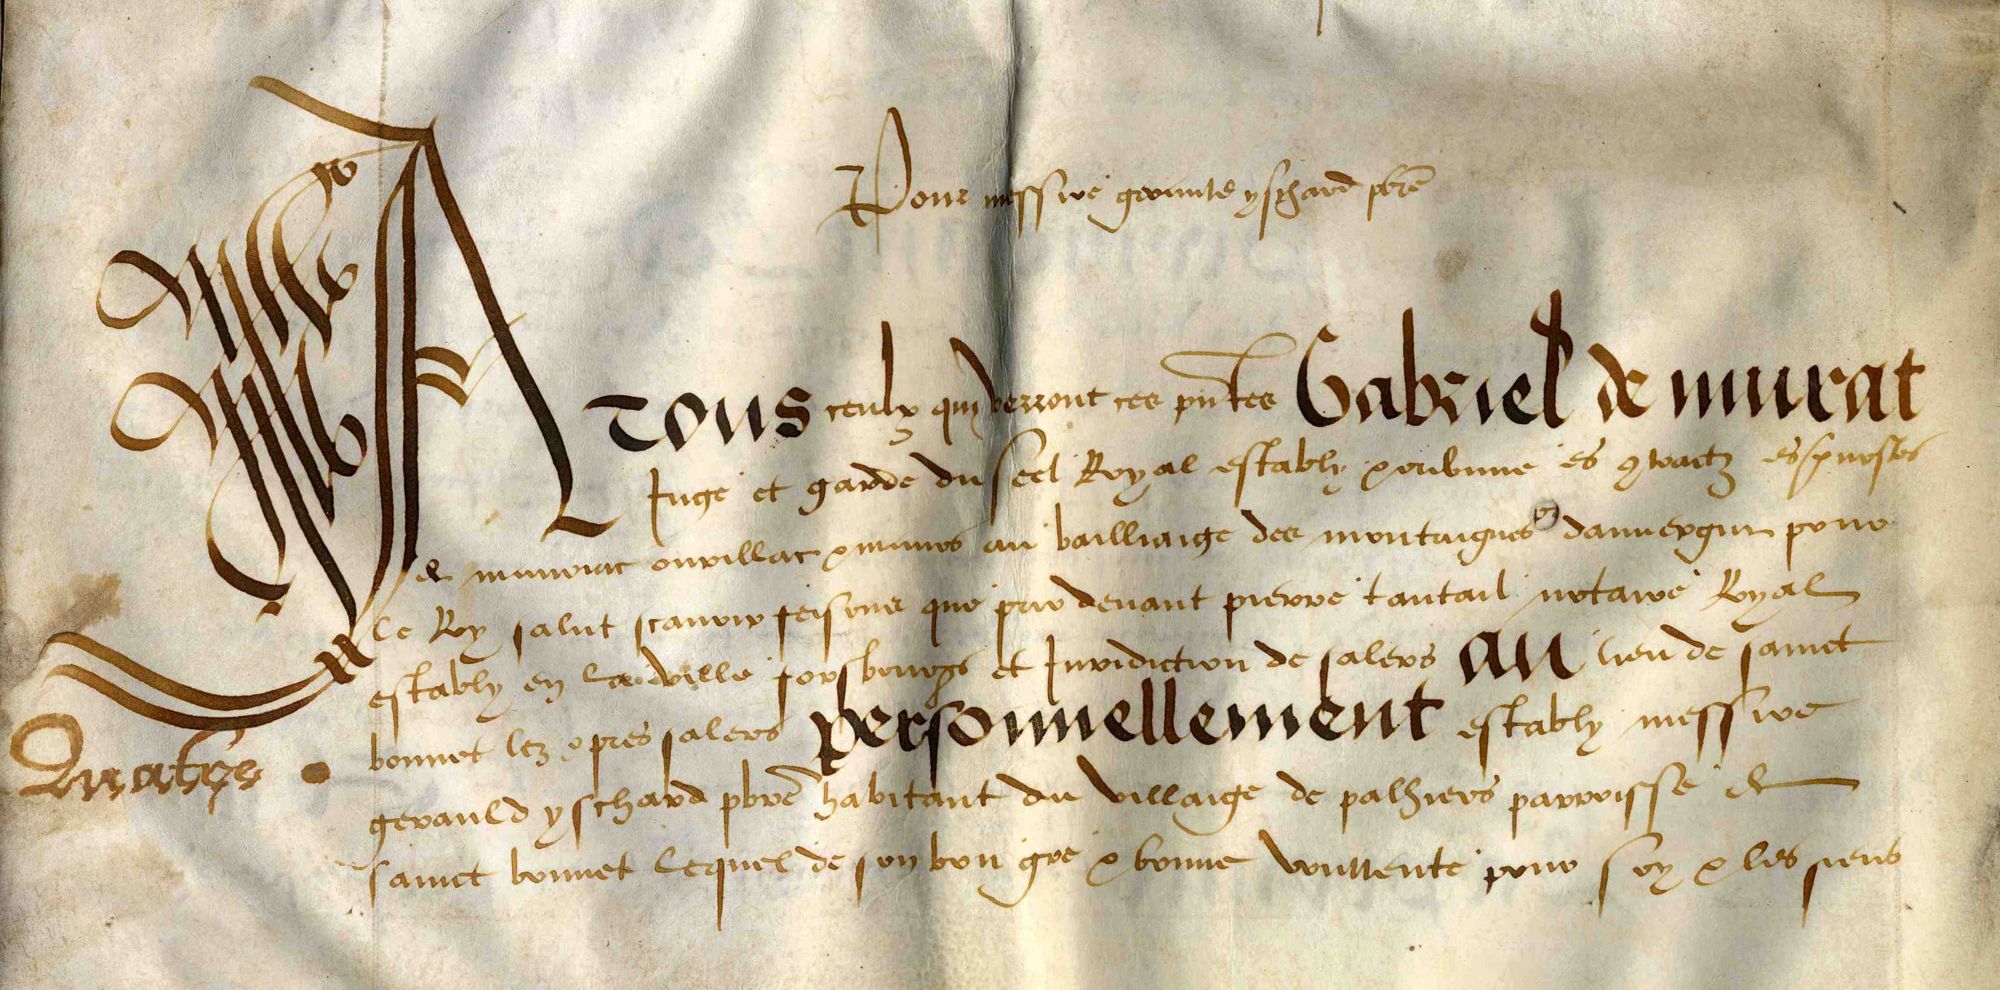 Pour messire gerauld yschard pbre
A Tous ceulx quy verront ces pntes Gabriel de murat
Juge et garde du seel Royal estably et ordonne es contractz es prevostes
de mauriac aurillac et maurs au bailliaige des montaignes dauvergne pour
le Roy salut scavoir faisons que par devant pierre tantail notaire Royal
estably en la ville forsbourgs et Juridiction de salers au lieu de sainct
bonnet lez pres salers personnellement estably messire
Quatre
gerauld yschard pbre habitant du villaige de palhiers parroisse de
sainct bonnet lequel de son bon gre et bonne voullente pour soy et les siens